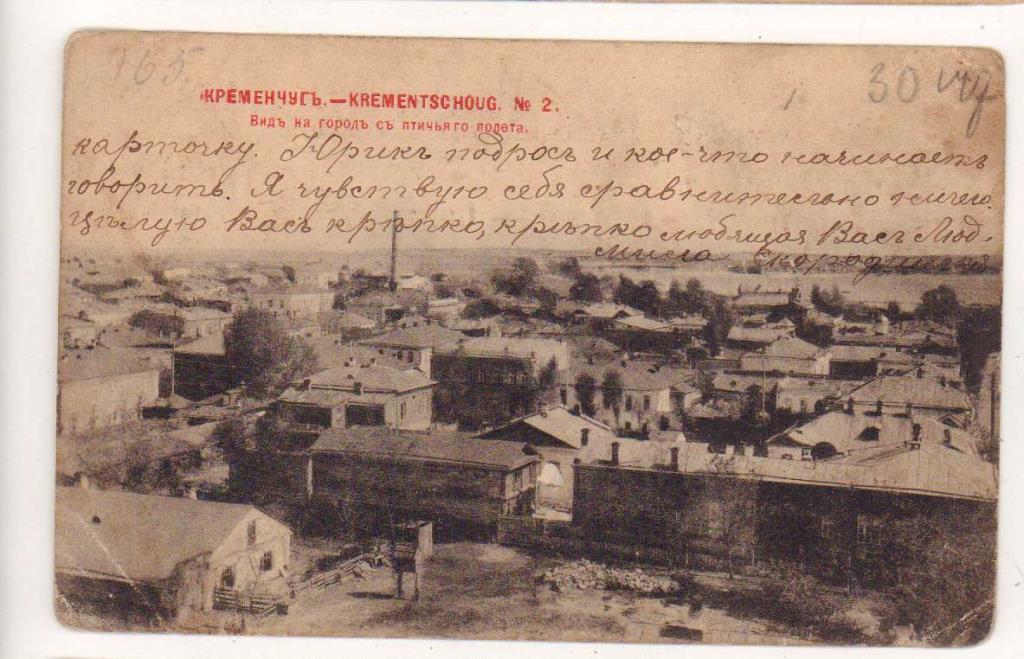 165.
30
КРЕМЕНЧУГЪ.—KREMENTSCHOUG. № 2.
Видъ на городъ съ птичьяго полета.
карточку. Юрикъ подросъ и кое-что начинаетъ
говорить. Я чувствую себя сравнительно ничего.
Цѣлую Васъ крѣпко, крѣпко любящая Васъ Люд-
мила